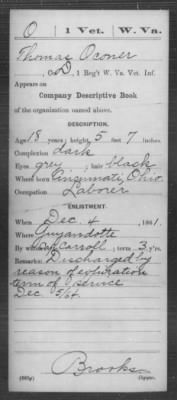 O 1 Vet. W. Va.
Thomas Oconer
, Co. D, 1 Reg't W. Va. Vet. Inf.
Appears on
Company Descriptive Book
of the organization named above.
DESCRIPTION.
Age 18 years; height 5 feet 7 inches.
Complexion dark
Eyes grey; hair black
Where born Cincinnati, Ohio
Occupation Laborer
ENLISTMENT.
When Dec 4, 1861.
Where Guyandotte
By whom Carroll; term 3 y'rs.
Remarks: Discharged by
reason of expiration
term of service
Dec 5/64.
Brooks
Copyist.